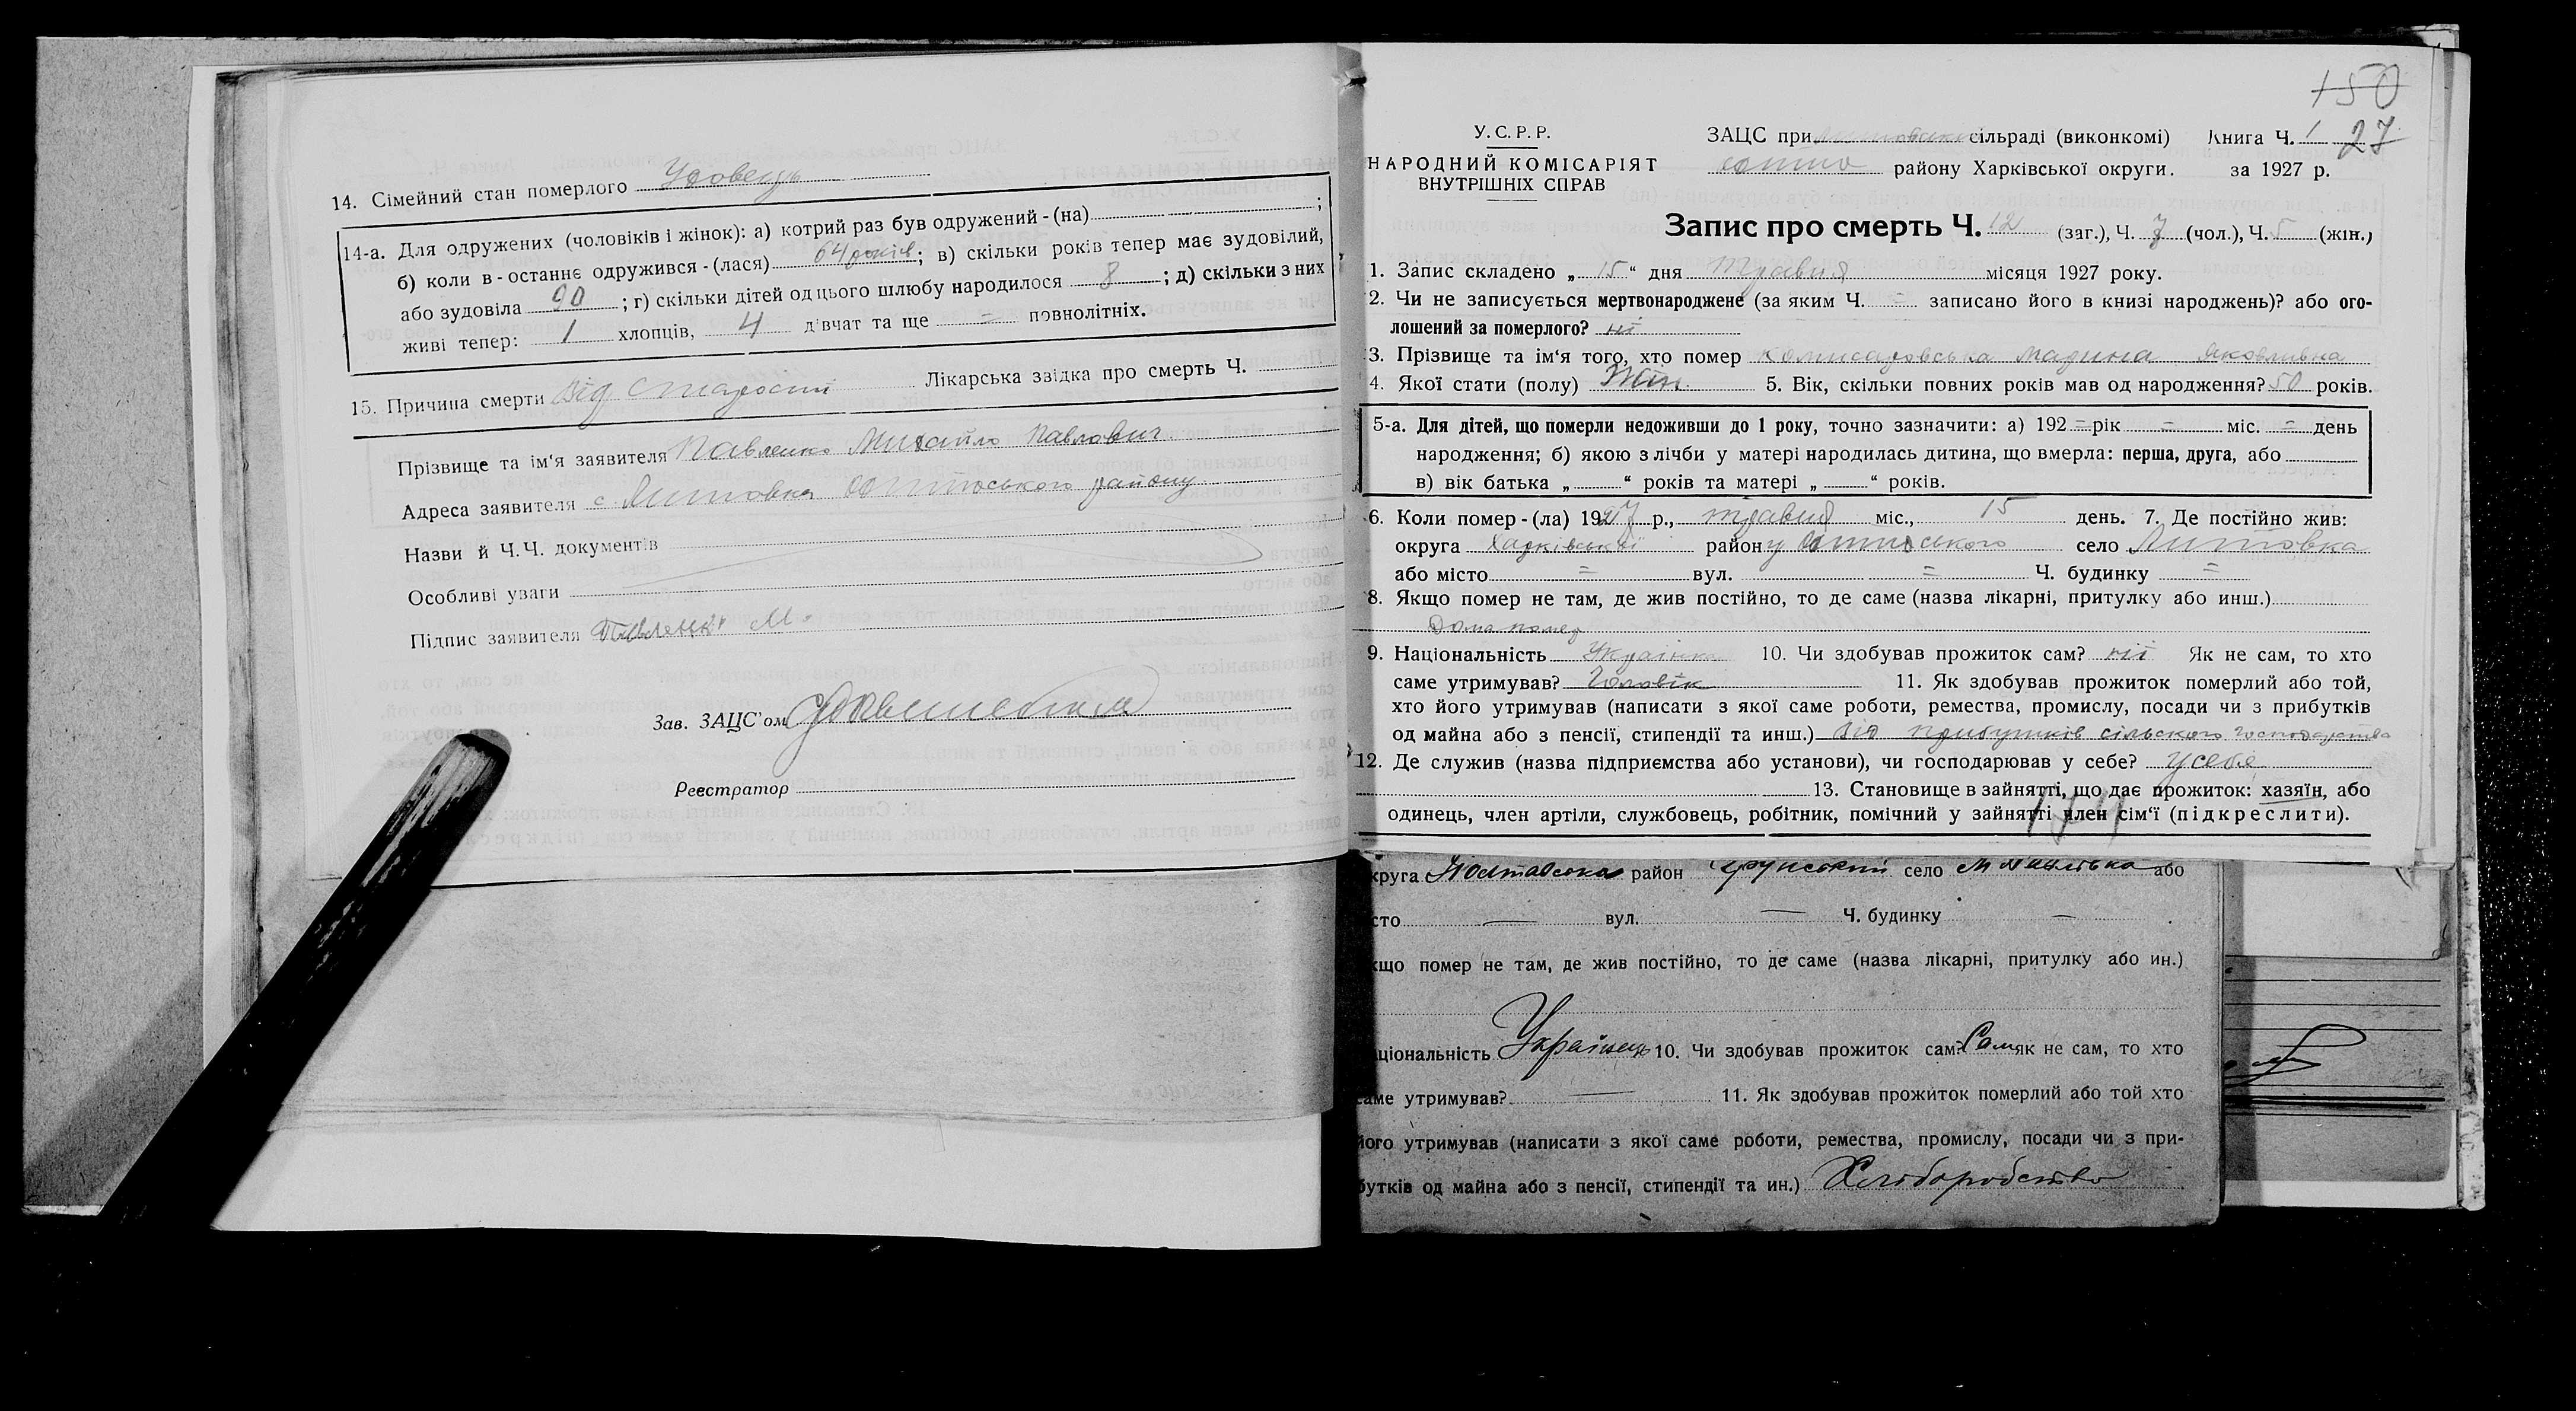 14. Сімейний стан померлого Удовець
14-а. Для одружених (чоловіків і жінок): а) котрий раз був одружений - (на) ;
б) коли в - останнє одружився - (лася) 64 років; в) скільки років тепер має зудовілий,
або зудовіла 90 ; г) скільки дітей од цього шлюбу народилося 8 ; д) скільки з них
живі тепер: 1 хлопців, 4 дівчат та ще = повнолітніх.
15. Причина смерти Від старости Лікарська звідка про смерть Ч.
Прізвище та ім'я заявителя Павленко Михайло Павлович
Адреса заявителя с Литовка району
Назви й Ч.Ч. документів
Особливі уваги
Підпис заявителя Павленко М.
Зав. ЗАЦС'ом
Реєстратор
150
У.С.Р.Р.
НАРОДНИЙ КОМІСАРІЯТ
ВНУТРІШНІХ СПРАВ
ЗАЦС при сільраді (виконкомі) Книга Ч. 1 27
району Харківської округи. за 1927 р.
Запис про смерть Ч. 12 (заг.), Ч. 7 (чол.), Ч. 5 (жін.)
1. Запис складено „ 15 “ дня Травня місяця 1927 року.
2. Чи не записується мертвонароджене (за яким Ч. = записано його в книзі народжень)? або ого-
лошений за померлого? ні
3. Прізвище та ім'я того, хто помер Комисаровська Марина Яковливна
4. Якої стати (полу) Жін. 5. Вік, скільки повних років мав од народження? 50 років.
5-а. Для дітей, що померли недоживши до 1 року, точно зазначити: а) 192 = рік = міс. = день
народження; б) якою з лічби у матері народилась дитина, що вмерла: перша, друга, або
в) вік батька „ “ років та матері „ “ років.
6. Коли помер - (ла) 1927 р., травня міс., 15 день. 7. Де постійно жив:
округа Харківської району село Литовка
або місто = вул. = Ч. будинку =
8. Якщо помер не там, де жив постійно, то де саме (назва лікарні, притулку або инш.)
Дома помер
9. Національність Українка 10. Чи здобував прожиток сам? ні Як не сам, то хто
саме утримував? Чоловік 11. Як здобував прожиток померлий або той,
хто його утримував (написати з якої саме роботи, ремества, промислу, посади чи з прибутків
од майна або з пенсії, стипендії та инш.) Від прибутків сільского господарства
12. Де служив (назва підприємства або установи), чи господарював у себе? У себе
13. Становище в зайнятті, що дає прожиток: хазяїн, або
одинець, член артіли, службовець, робітник, помічний у зайнятті член сім'ї (підкреслити).
круга Полтавська район село або
сто — вул. — Ч. будинку — .
кщо помер не там, де жив постійно, то де саме (назва лікарні, притулку або ин.)
ціональність Українець 10. Чи здобував прожиток сам? Сам як не сам, то хто
аме утримував? — 11. Як здобував прожиток померлий або той хто
його утримував (написати з якої саме роботи, ремества, промислу, посади чи з при-
бутків од майна або з пенсії, стипендії та ин.) Хліборобство